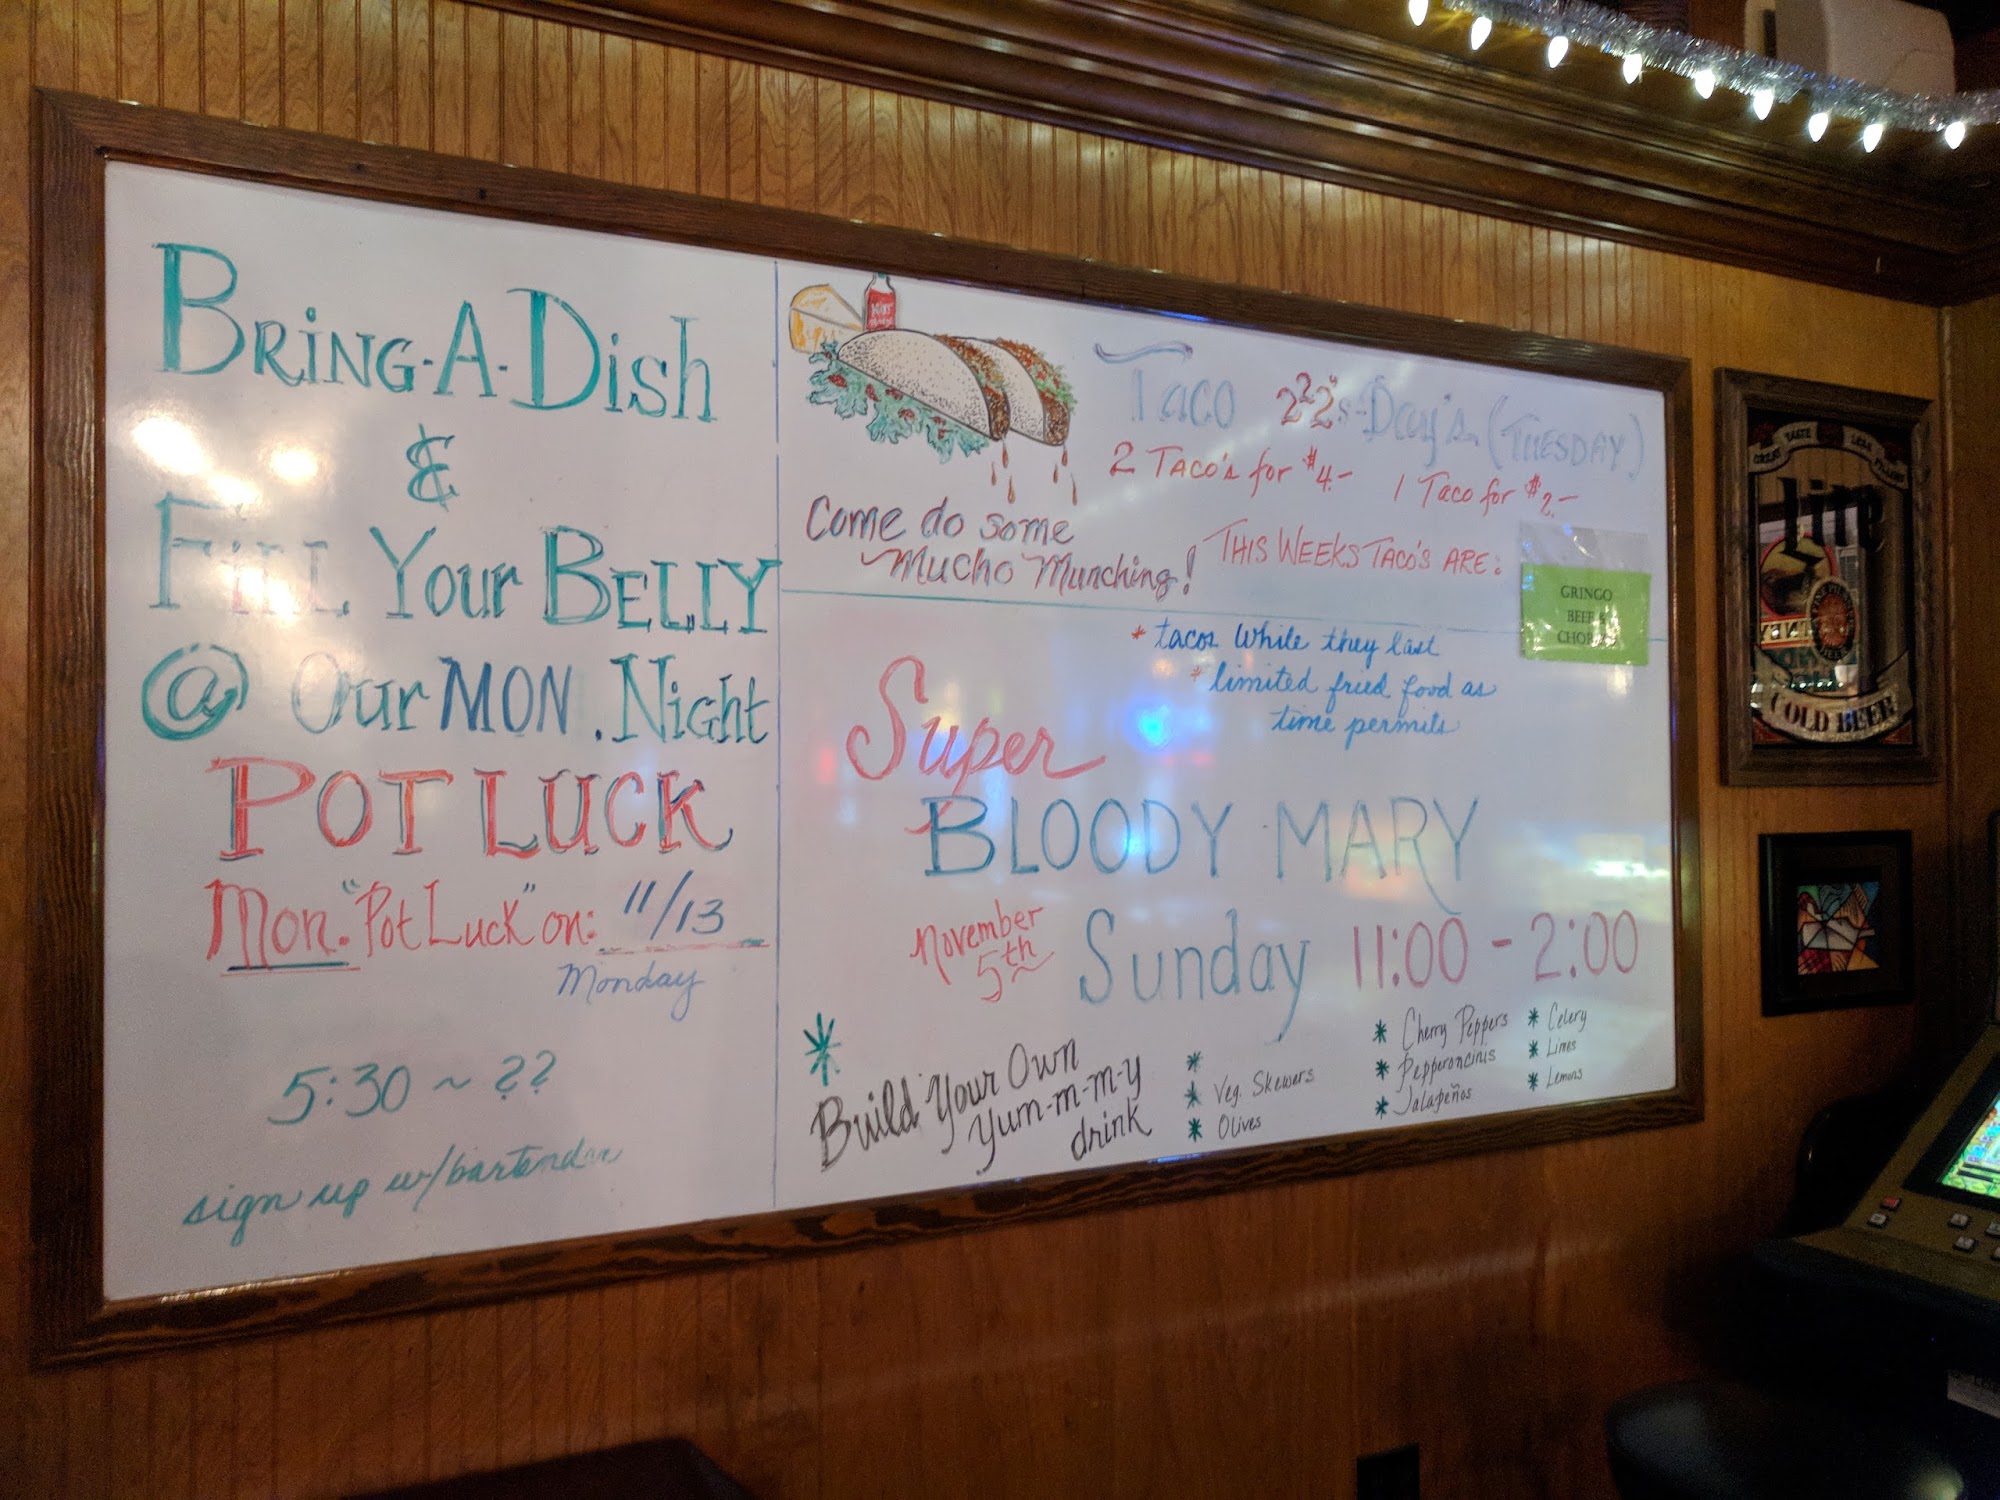 BRING-A-DISH
&
FILL YOUR BELLY
@ OUR MON. NIGHT
POT LUCK
Mon. "Pot Luck" on: 11/13
Monday
5:30 ~ ??
sign up w/bartender
HOT
TACO 222's-Day's. (TUESDAY)
2 TACO'S for $4.-
1 Taco for $2.-
Come do some
Mucho Munching!
THIS WEEKS TACO'S ARE:
GRINGO
BEEF &
* tacos while they last
* limited fried food as
time permits
Super
BLOODY MARY
November
5th
Sunday 11:00 - 2:00
* Build Your Own
Yum-m-m-y
drink
*
* Veg. Skewers
* Olives
* Cherry Peppers
* Pepperoncinis
* Jalapeños
* Celery
* Limes
* Lemons
GREAT TASTE LESS FILLING
Lite
COLD BEER